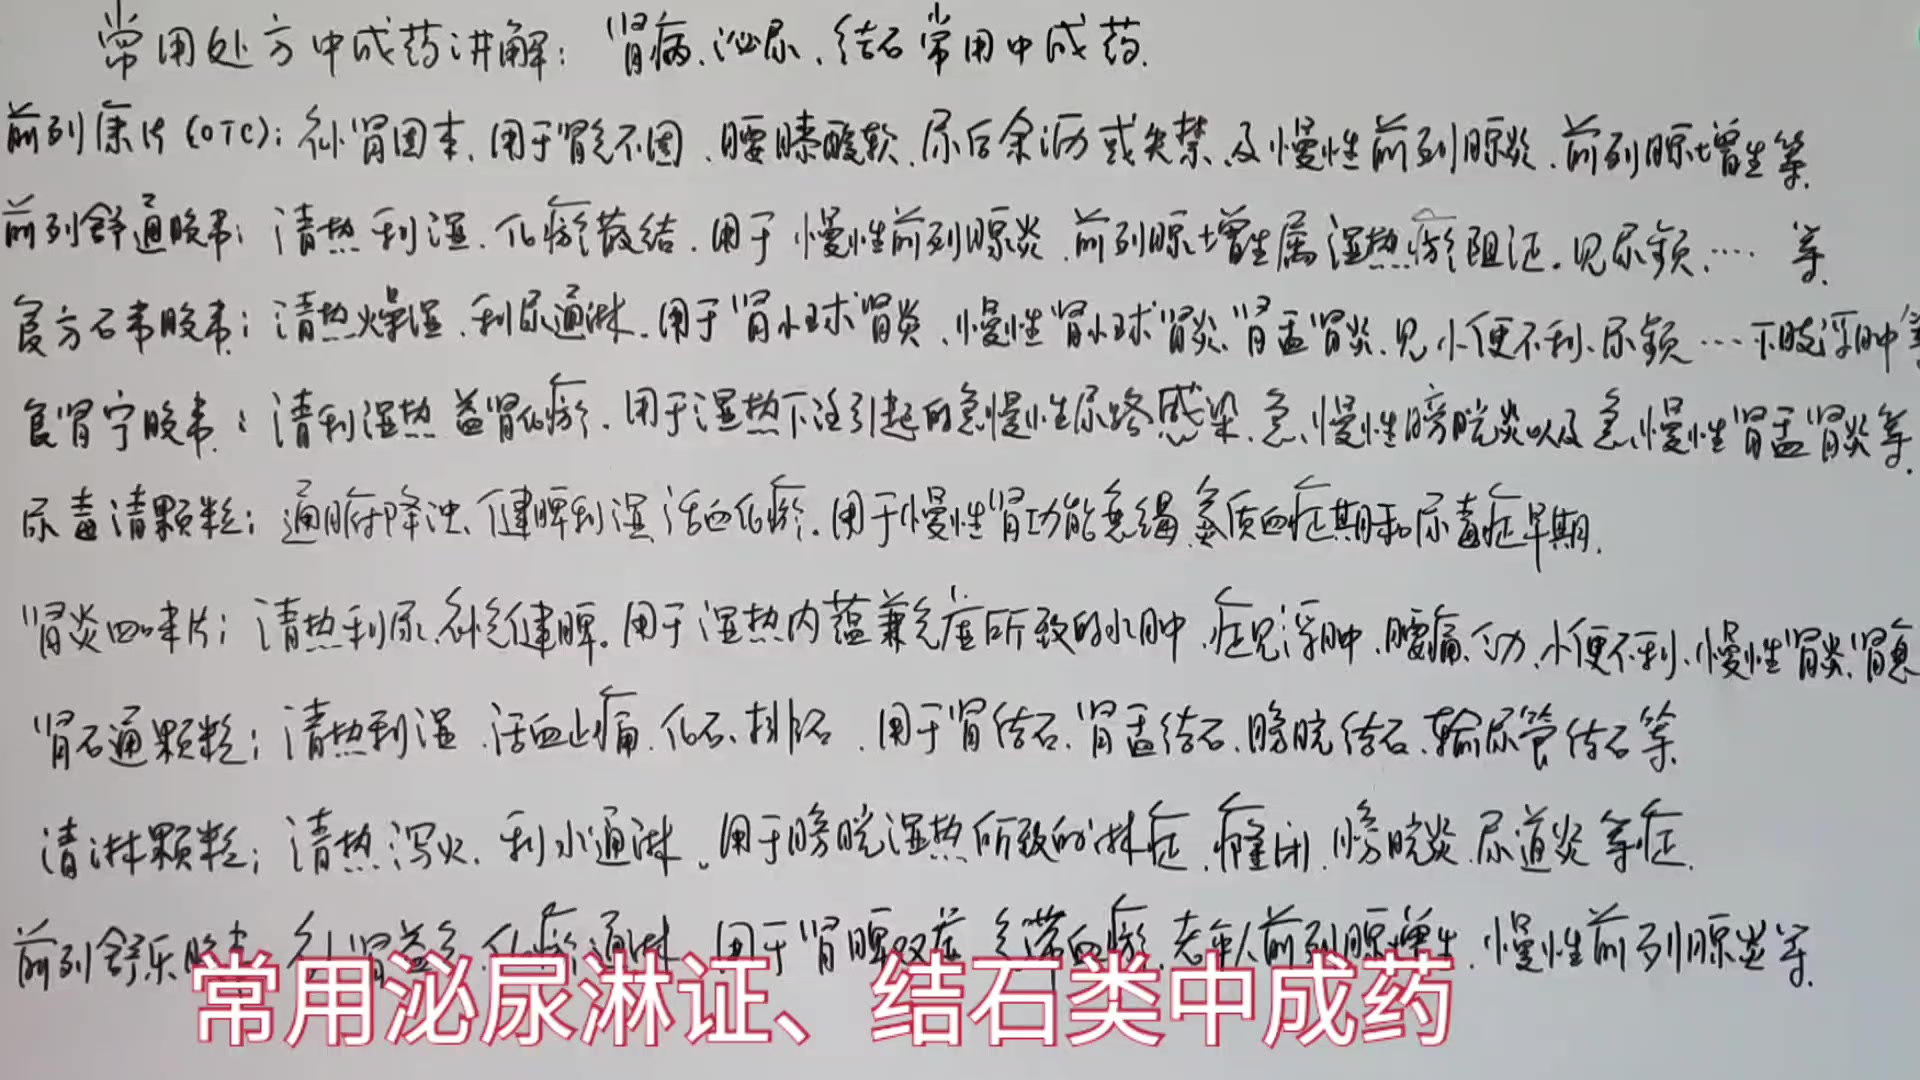 常用处方中成药讲解：肾病、泌尿、结石常用中成药.
前列康片(OTC)：补肾固本、用于肾气不固、腰膝酸软、尿后余沥或失禁、及慢性前列腺炎、前列腺增生等.
前列舒通胶囊：清热利湿、化瘀散结、用于慢性前列腺炎、前列腺增生属湿热瘀阻证。见尿频、…… 等.
复方石韦胶囊：清热燥湿、利尿通淋、用于肾小球肾炎、慢性肾小球肾炎、肾盂肾炎、见小便不利、尿频……下肢浮肿等
复肾宁胶囊：清利湿热 益肾化瘀、用于湿热下注引起的急慢性尿路感染、急、慢性膀胱炎以及急、慢性肾盂肾炎等.
尿毒清颗粒：通腑降浊、健脾利湿、活血化瘀、用于慢性肾功能衰竭、氮质血症期和尿毒症早期.
肾炎四味片：清热利尿、补气健脾。用于湿热内蕴兼气虚所致的水肿、症见浮肿、腰痛、乏力、小便不利、慢性肾炎、肾
肾石通颗粒：清热利湿、活血止痛、化石、排石、用于肾结石、肾盂结石、膀胱结石、输尿管结石等.
清淋颗粒：清热泻火、利水通淋。用于膀胱湿热所致的淋症、癃闭、膀胱炎、尿道炎等症.
前列舒乐胶囊 补肾益气、化瘀通淋、用于肾脾双虚、气滞血瘀、老年人前列腺增生、慢性前列腺炎等.
常用泌尿淋证、结石类中成药